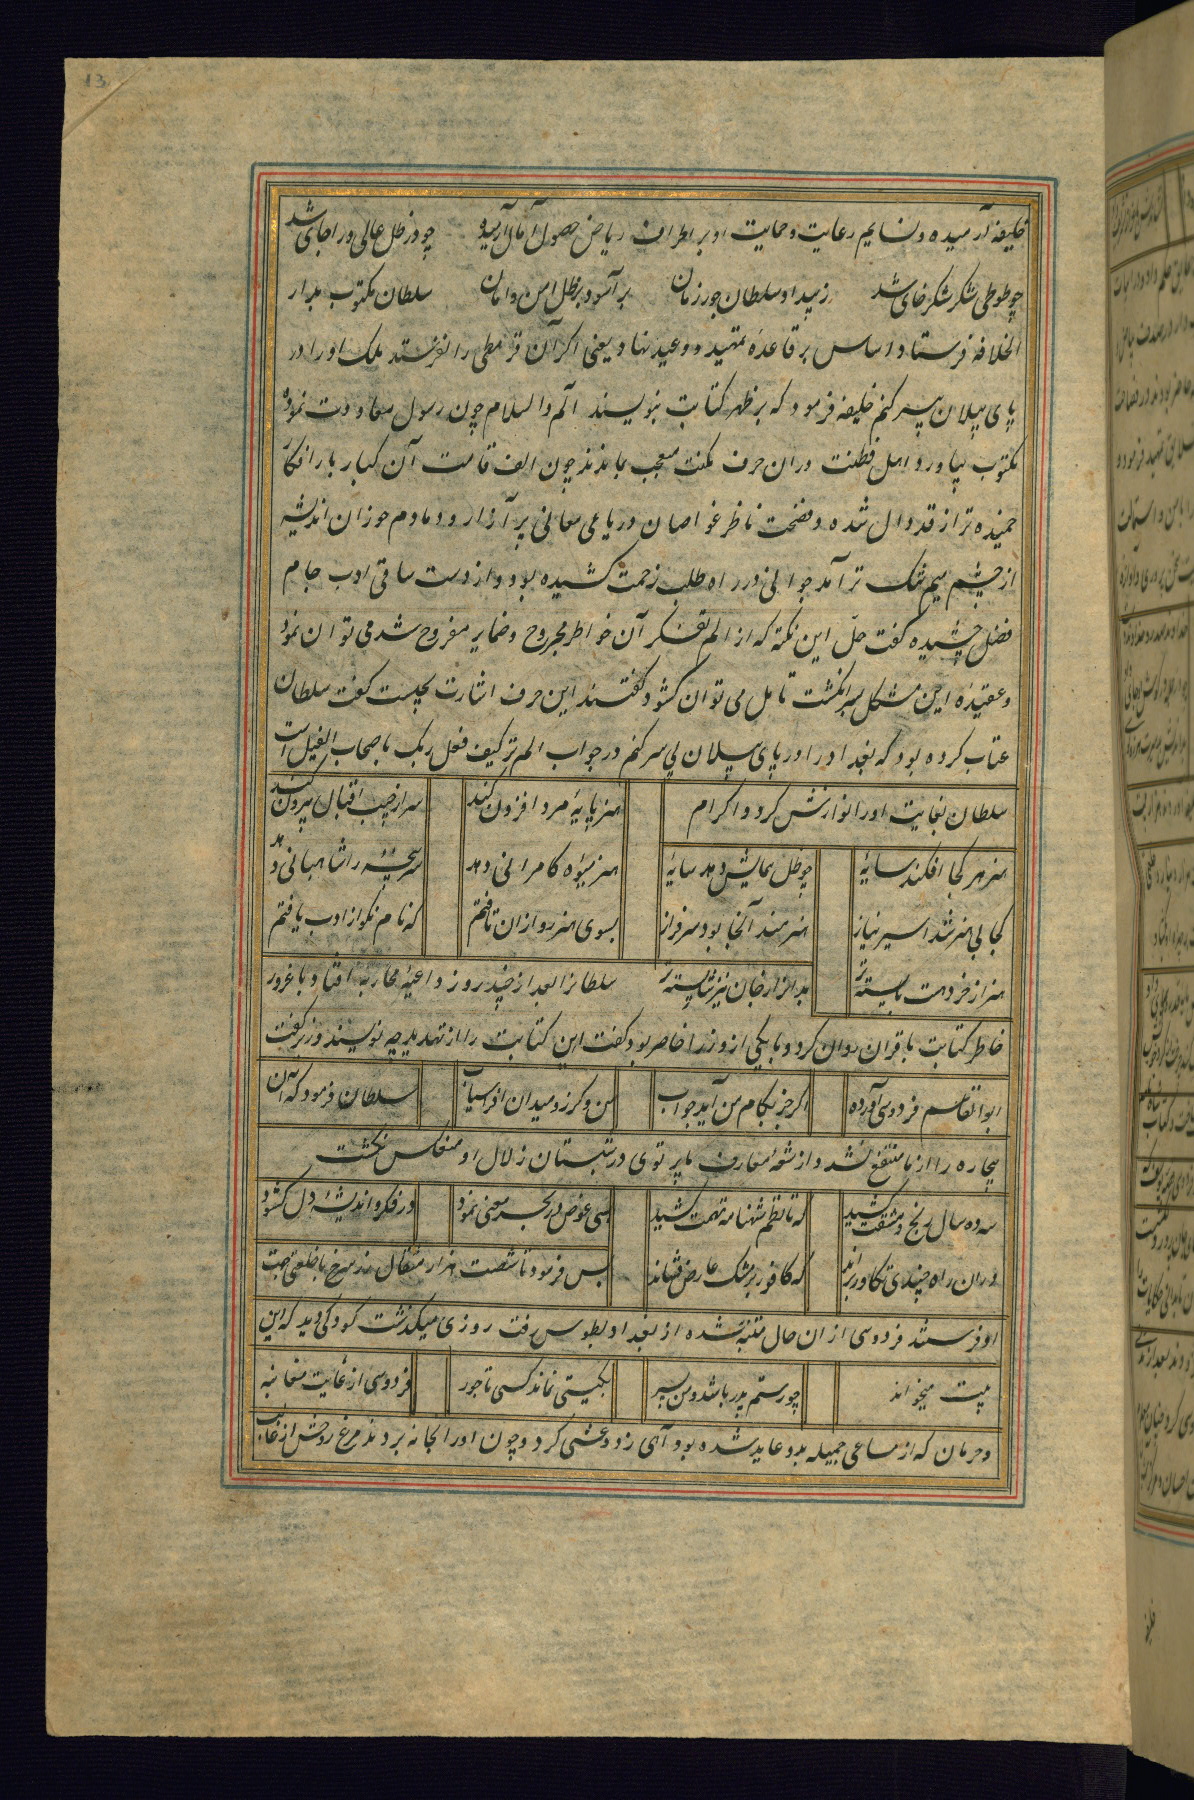 13
خلیفه آرمیده و نسایم رعایت و حمایت او بر اطراف ریاض حصول آمال آرمیده چو در ظل عالی ورا جای شد
چو طوطی شکر شکرخای شد ز بیداد سلطان جور زمان برآسود بر ظل امن و امان سلطان مکتوب بدار
الخلافه فرستاد اساس بر قاعده تمهید و وعید نهاد یعنی اگر آن قرمطی را نفرستد ملک او را در
پای پیلان پی سپر کنم خلیفه فرمود که بر ظهر کتابت بنویسند الم والسلام چون رسول معاودت نمود
مکتوب بیاورد اهل فطنت در آن حرف مکنت متعجب بماندند چون الف قامت آن کبار بار افکار
خمیده تر از قد دال شده و ناظر غواصان دریای معانی پر آزار و دمادم اندیشه
از چشم میم تنک تر آمد جوانی در راه طلب زحمت کشیده بود و از دست ساقی ادب جام
فضل چشیده گفت حلّ این نکته که از الم تفکر آن خواطر مجروح و ضمایر مقروح شد می توان نمود
و عقیده این مشکل بسرانگشت تامل می توان گشود گفتند این حرف اشارت بچیست گفت سلطان
عتاب کرده بود که بغداد را در پای پیلان پی سر کنم در جواب الم تر کیف فعل ربک باصحاب الفیل است
سلطان بغایت او را نوازش کرد و اکرام هنر پایهٔ مرد افزون کند سر از جیب اقبال بیرون کند
هنر هر کجا افکند سایهٔ چو ظل همایش دهد سایهٔ هنر میوه کامرانی دهد دهد
کجا بی هنر شد اسیر نیاز هنرمند آنجا بود سرفراز بسوی هنر رو از آن تافتم که نام نکو از ادب یافتم
هنر از خردمند بایسته تر شایسته تر سلطان را بعد از چند روز داعیهٔ محاربه افتاد با غرور
خاطر کتابت باقران روان کرد و با یکی از وزرا حاضر بود گفت این کتابت را از تهدید چه نویسند وزیر گفت
ابوالقاسم فردوسی آورده اگر جز بکام من آید جواب من و گرز و میدان افراسیاب سلطان فرمود که آن
بیچاره را از ما منتفع نشد و از شعهٔ معارف ما پرتوی در شبستان زلال او منعکس نگشت
سه ده سال رنج و مشقت کشید که تا نظم شهنامه تهمت کشید بسی غوض در بحر معنی نمود در فکر و اندیشهٔ دل گشود
در آن راه چندی تکاور براند که کافور بر مشک عارض فشاند پس فرمود تا شصت هزار مثقال زر سرخ با خلعتی جهت
او فرستند فردوسی از آن حال متنبه شده از بغداد بطوس رفت روزی میگذشت کودکی دید که این
بیت میخواند چو رستم پدر باشد و من پسر بگیتی نماند کسی تاجور فردوسی از غایت
و حرمان که از مساعی جمیله بدو عاید شده بود آهی زد و غشی کرد و چون او را بخانه بردند مرغ روحش از قفس